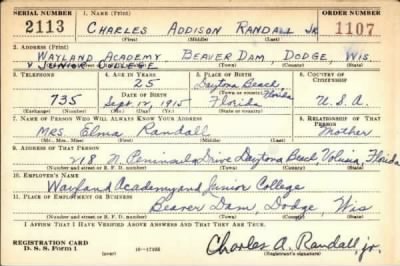 SERIAL NUMBER 1. NAME (Print) ORDER NUMBER
2113 CHARLES ADDISON RANDALL JR 1107
(First) (Middle) (Last)
2. ADDRESS (Print)
WAYLAND ACADEMY BEAVER DAM, DODGE, WIS.
& JUNIOR COLLEGE
(Number and street or R. F. D. number) (Town) (County) (State)
3. TELEPHONE 4. AGE IN YEARS 5. PLACE OF BIRTH 6. COUNTRY OF CITIZENSHIP
25 Daytona Beach Florida
DATE OF BIRTH (Town or county)
735 Sept 17, 1915 Florida U.S.A.
(Exchange) (Number) (Mo.) (Day) (Yr.) (State or country)
7. NAME OF PERSON WHO WILL ALWAYS KNOW YOUR ADDRESS 8. RELATIONSHIP OF THAT PERSON
MRS. Elma Randall Mother
(Mr., Mrs., Miss) (First) (Middle) (Last)
9. ADDRESS OF THAT PERSON
218 N. Peninsula Drive Daytona Beach, Volusia, Florida
(Number and street or R. F. D. number) (Town) (County) (State)
10. EMPLOYER'S NAME
Wayland Academy and Junior College
11. PLACE OF EMPLOYMENT OR BUSINESS
Beaver Dam, Dodge, Wis
(Number and street or R. F. D. number) (Town) (County) (State)
I AFFIRM THAT I HAVE VERIFIED ABOVE ANSWERS AND THAT THEY ARE TRUE.
REGISTRATION CARD
D. S. S. Form 1 Charles A. Randall, jr.
(Registrant's signature)